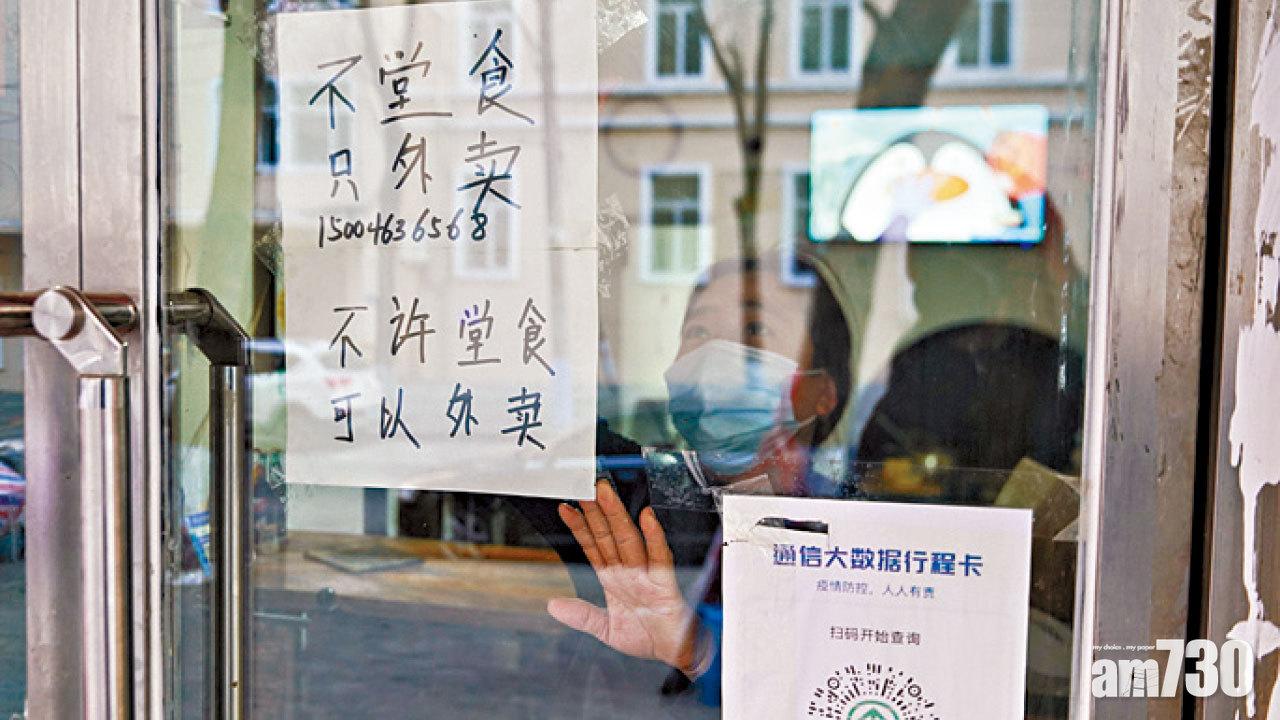 不堂食
只外卖
15004636568
不许堂食
可以外卖
通信大数据行程卡
疫情防控，人人有责
扫码开始查询
my choice . my paper
am730